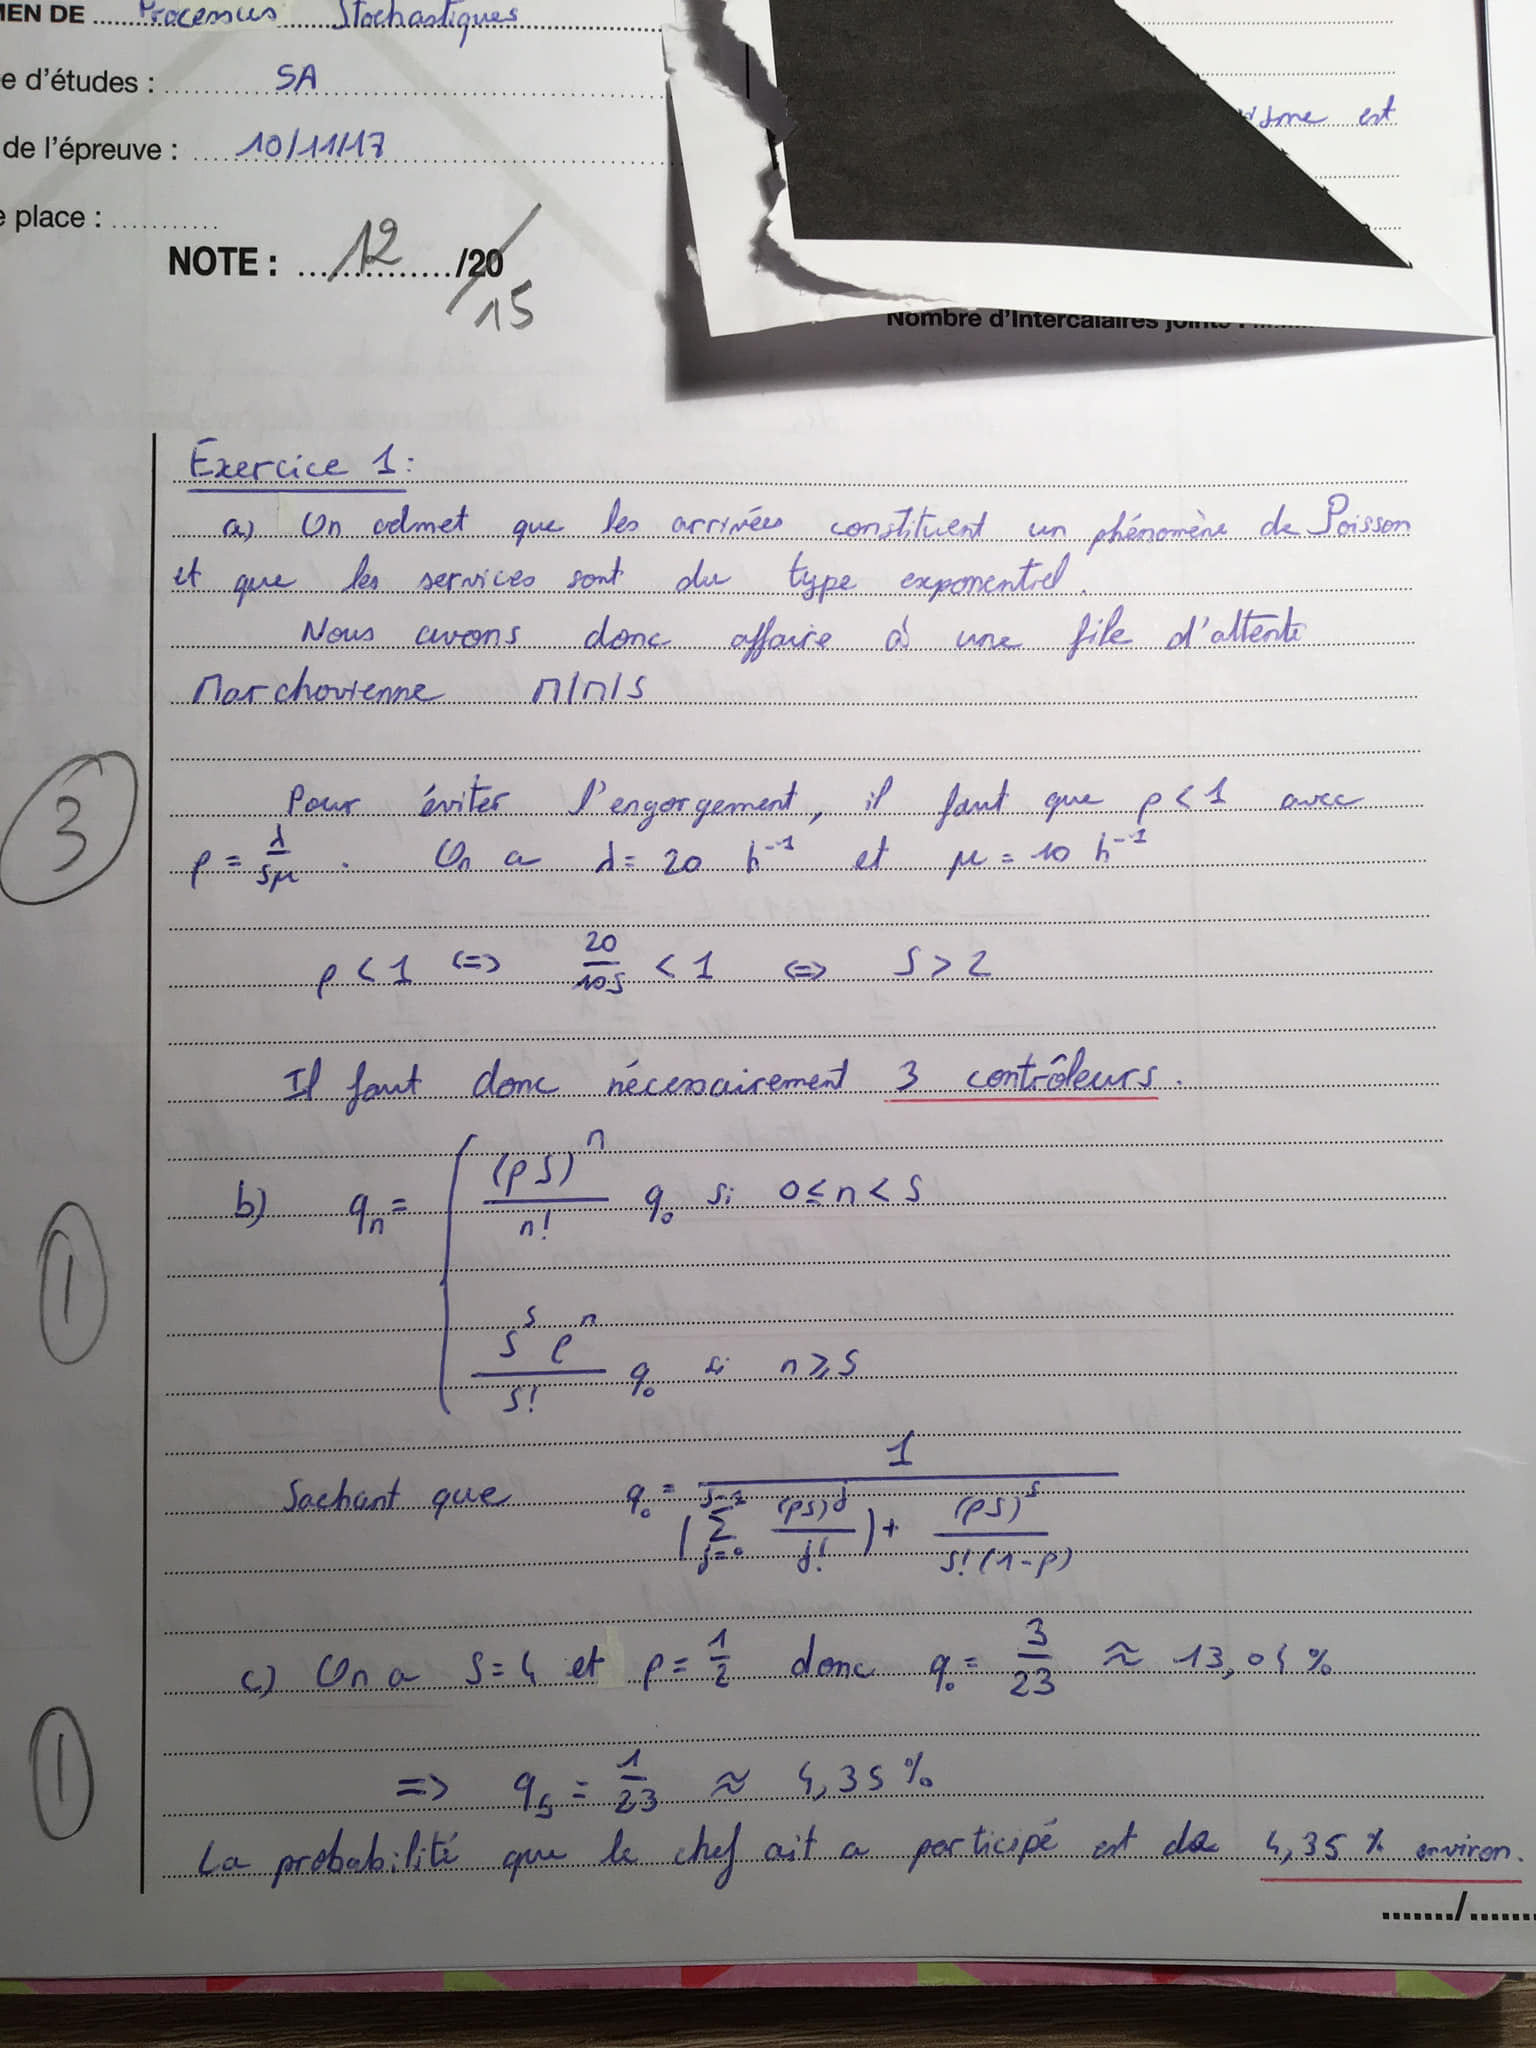 MEN DE ... Processus Stochastiques
e d'études : SA
de l'épreuve : 10/11/17
e place : ............
est
NOTE : 12 /20
15
Nombre d'Intercalaires joints :
Exercice 1:
a) On admet que les arrivées constituent un phénomène de Poisson
et que les services sont du type exponentiel.
Nous avons donc affaire à une file d'attente
Marchovienne M/M/S
3
Pour éviter l'engorgement, il faut que ρ < 1 avec
ρ = λ/Sμ . On a λ = 20 h⁻¹ et μ = 10 h⁻¹
ρ < 1 <=> 20/10S < 1 <=> S > 2
Il faut donc nécessairement 3 contrôleurs.
1
b) qₙ = { (ρS)ⁿ/n! q₀ si 0 ≤ n < S
S^S ρⁿ/S! q₀ si n ≥ S
Sachant que q₀ = 1/((∑_{j=0}^{S-1} (ρS)^j/j!) + (ρS)^S/(S!(1-ρ)))
1
c) On a S = 4 et ρ = 1/2 donc q₀ = 3/23 ≈ 13,04 %
=> q₅ = 1/23 ≈ 4,35 %
La probabilité que le chef ait a participé est de 4,35 % environ.
......./.......